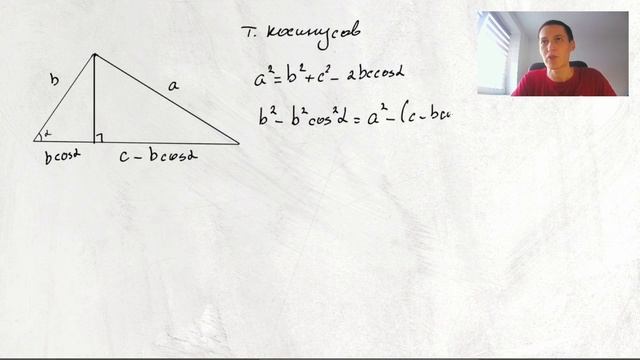 т. косинусов
b
a
a² = b² + c² - 2bc cosα
α
b² - b² cos² α = a² - (c - b co
b cosα
c - b cosα